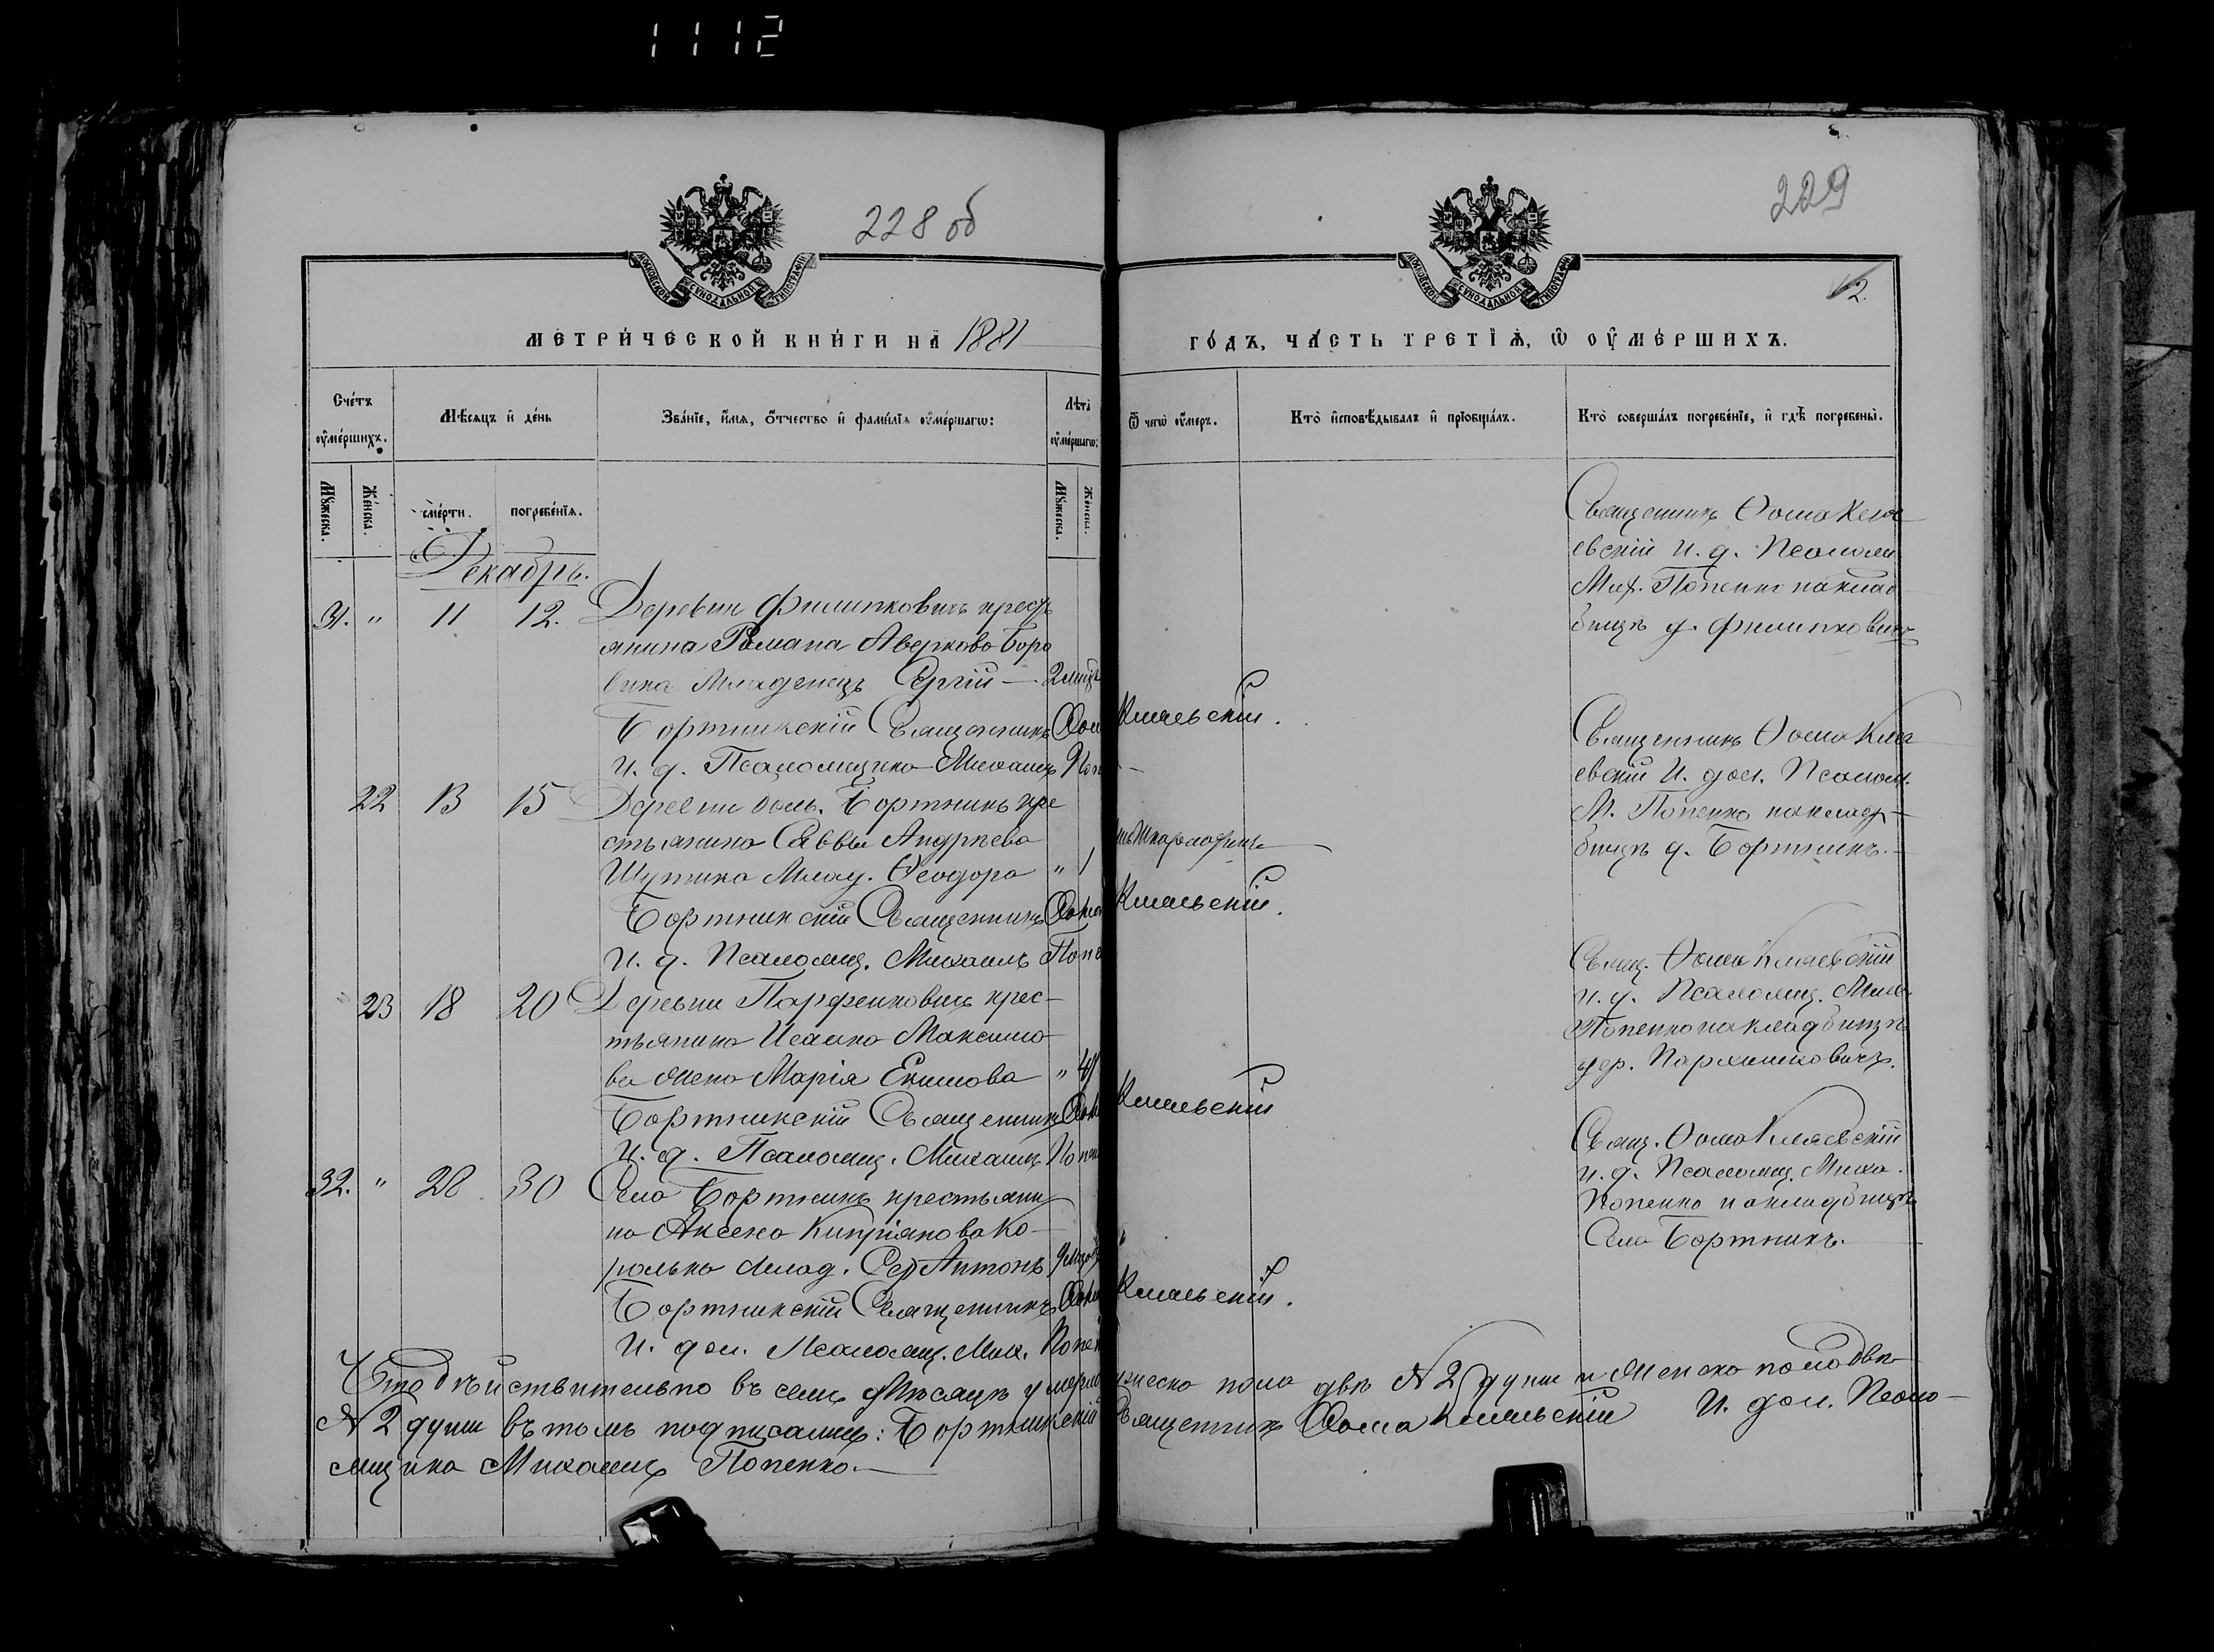 1112
228 об
229
МОСКОВСКОЙ СѴНОДАЛЬНОЙ ТИПОГРАФІИ
МОСКОВСКОЙ СѴНОДАЛЬНОЙ ТИПОГРАФІИ
2.
МЕТРИЧЕСКОЙ КНИГИ НА 1881
ГОДЪ, ЧАСТЬ ТРЕТІѦ, Ѡ ОУМЕРШИХЪ.
Счетъ оумершихъ.
Мѣсяцъ и день
Званіе, имѧ, отчество и фамиліѧ оумершагѡ:
Лѣта оумершагѡ:
Ѿ чегѡ оумеръ.
Кто исповѣдывалъ и пріобщалъ.
Кто совершалъ погребеніе, и гдѣ погребены.
Мужеска. Женска. смерти. погребеніѧ. Мужеска. Женска.
Декабрь.
31. " 11 12. Деревни Филипковичъ кресть
янина Романа Аверкова Боро
вика Младенецъ Сергій — 2 мѣся
Бортникскій Священникъ Ѳом Кмаевскій.
И. д. Псаломщика Михаилъ Поп
Священникъ Ѳома Кма
евскій И. д. Псаломщ
Мих. Попенко на клад
бищѣ д. Филипковичъ
22 13 15 Деревни Боль. Бортникъ кре
стьянина Саввы Андреева
Шутика Млад. Ѳеодора " 1
Бортникскій Священникъ Ѳома Кмаевскій.
И. д. Псаломщ. Михаилъ Попе
Священникъ Ѳома Кма
евскій И. дол. Псалом.
М. Попенко на клад
бищѣ д. Бортникъ.
23 18 20 Деревни Парфенковичъ крес-
тьянина Исаака Максимо
ва жена Марія Екимова " 41
Бортникскій Священникъ Ѳом Кмаевскій
И. д. Псаломщ. Михаилъ Попен
Свящ. Ѳома Кмаевскій
и. д. Псаломщ. Миха
Попенко на кладбищѣ
дер. Пархимковичъ.
32. " 28 30 Села Бортникъ крестьяни
на Аксена Кипріянова Ко-
ролько млад. Антонъ
Бортникскій Священникъ Ѳом Кмаевскій.
И. дол. Псаломщ. Мих. Попен
Свящ. Ѳома Кмаевскій
и. д. Псаломщ. Миха.
Попенко на кладбищѣ
Села Бортникъ.
Что дѣйствительно въ семъ Мѣсяцѣ умерло мужеска пола двѣ № 2 души и Женска пола двѣ
№ 2 души въ томъ подписались: Бортникскій Священникъ Ѳома Кмаевскій И. дол. Псало-
мщика Михаилъ Попенко.